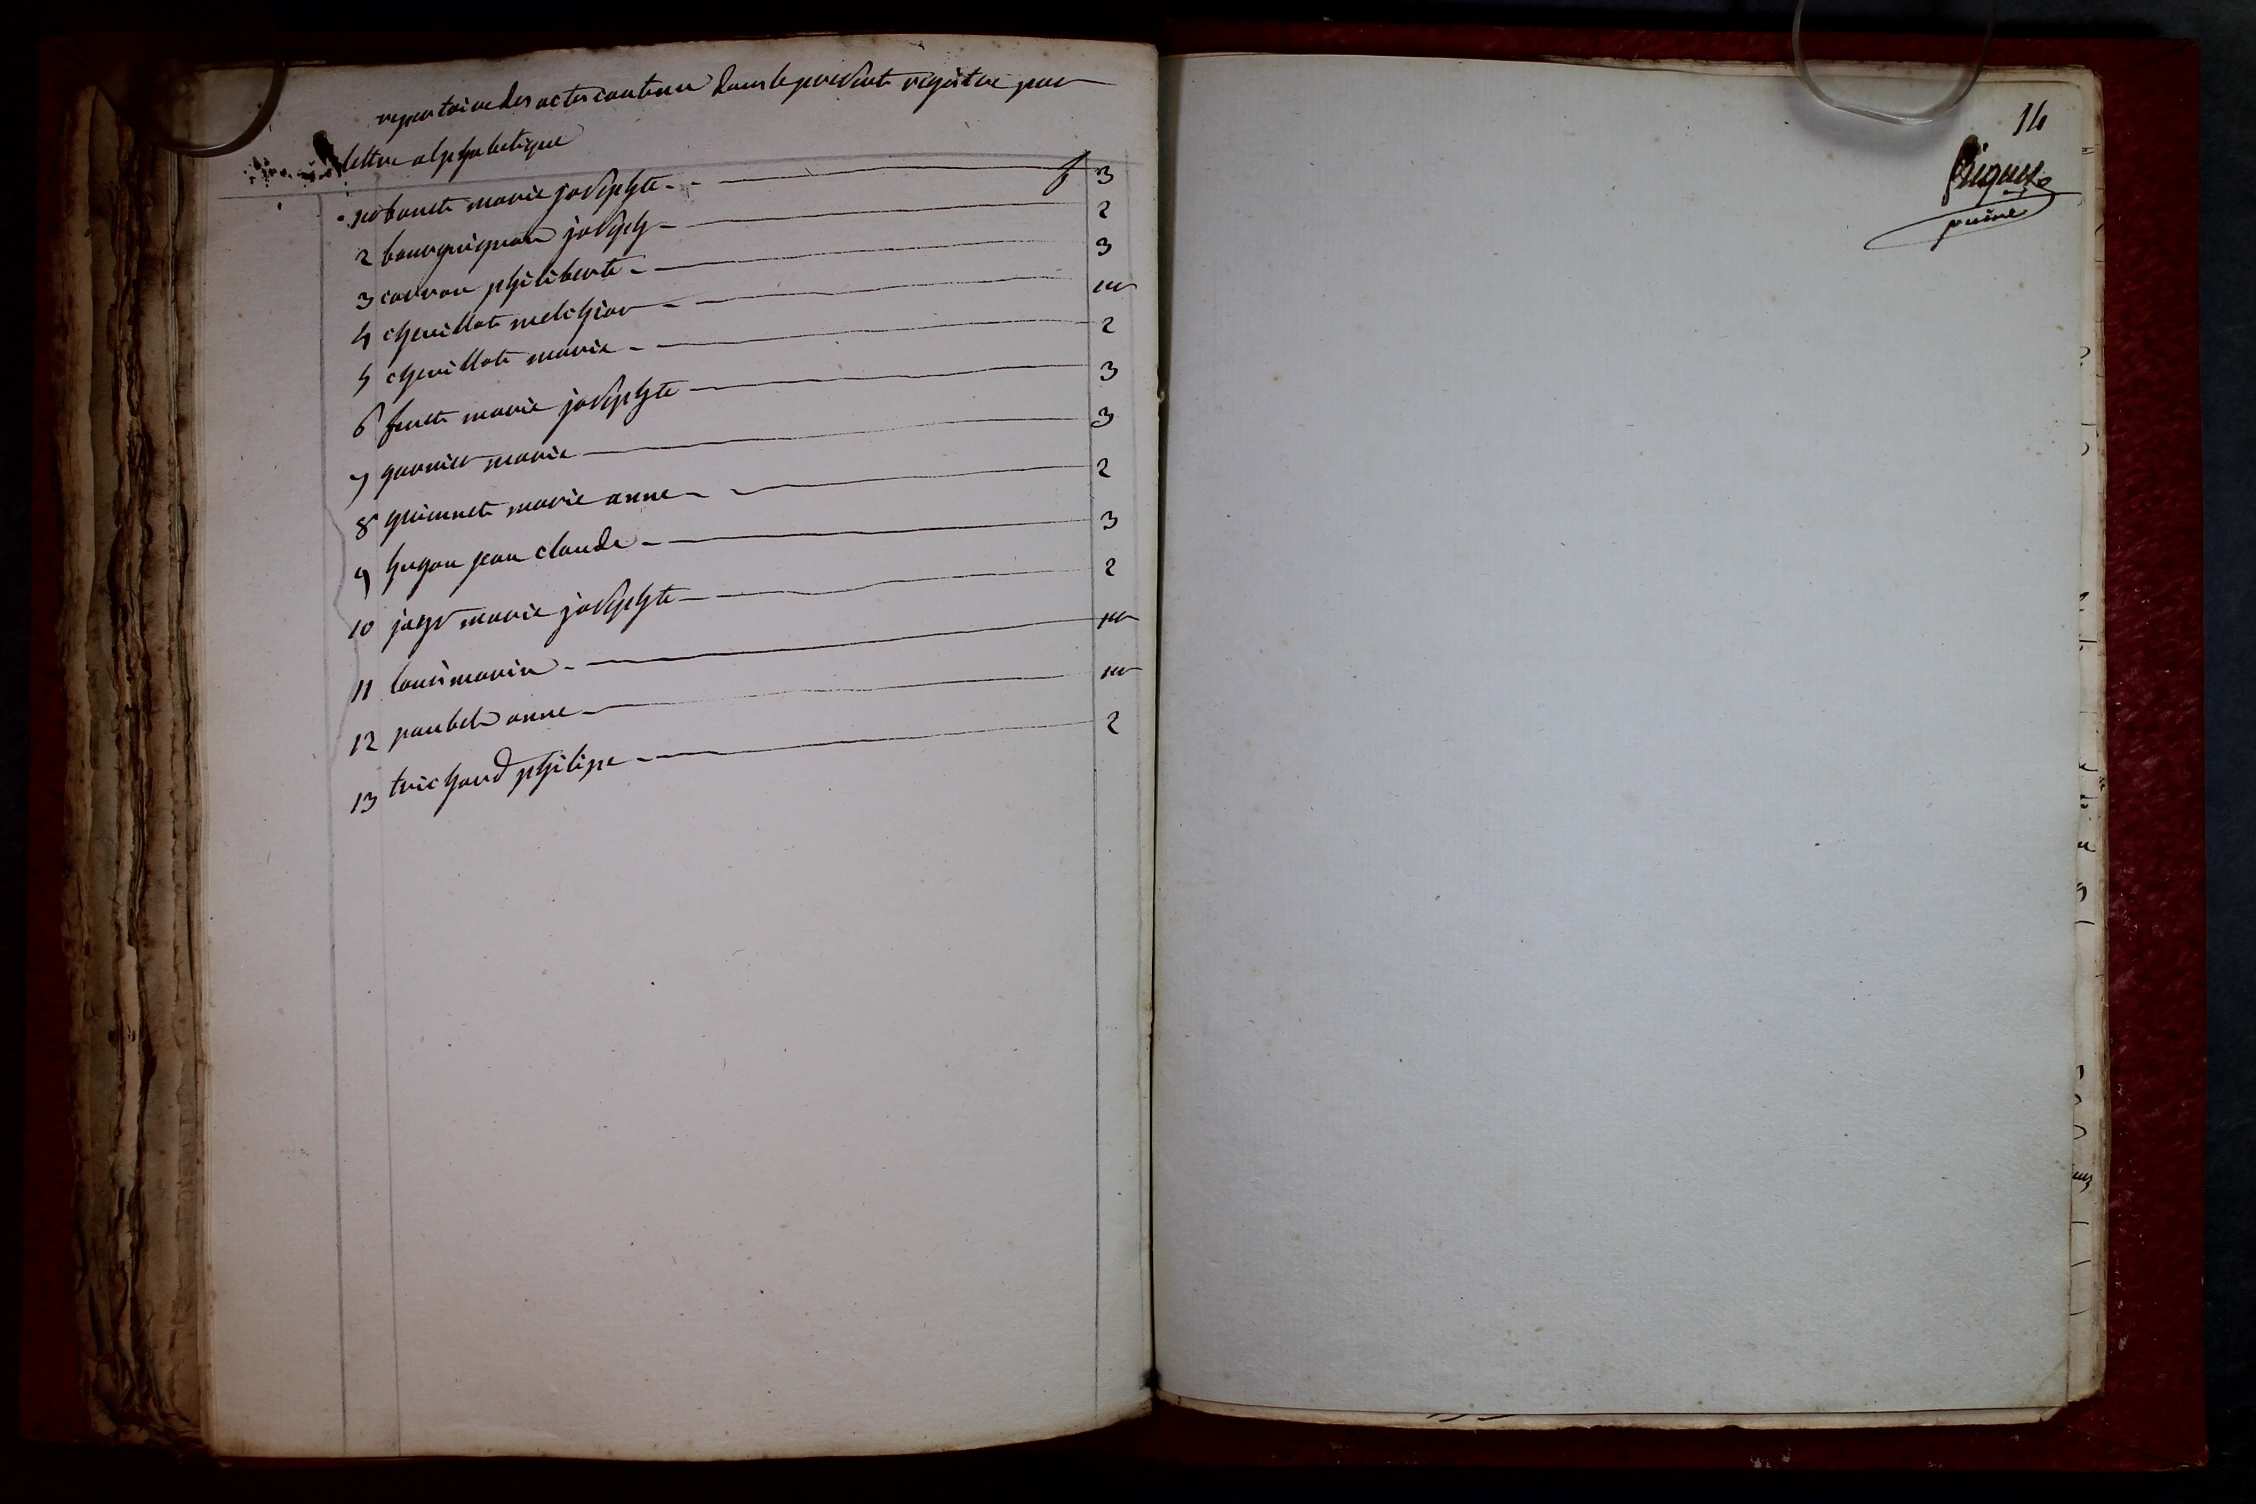 repertoire des actes contenu dans le present registre par
lettre alphabetique
1er bonet marie josephte - - f 3
2 bourguignon joseph - 2
3 carron philiberte - 3
4 chevillot melchior - 1er
5 chevillot marie - 2
6 feuet marie josephte 3
7 garnier marie 3
8 guionnet marie anne - 2
9 hugon jean claude - 3
10 jayr marie josephte 2
11 louis marin - 1er
12 paubel anne 1er
13 trichard philipe - 2
14
puîné